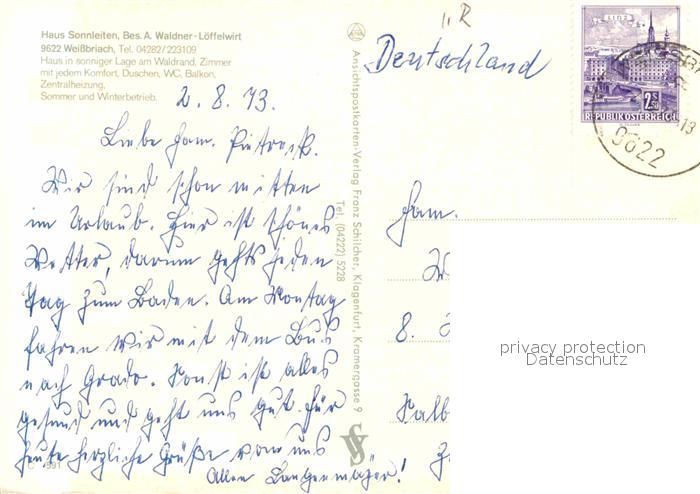 Haus Sonnleiten, Bes. A. Waldner-Löffelwirt
9622 Weißbriach, Tel. 04282/223109
Haus in sonniger Lage am Waldrand, Zimmer
mit jedem Komfort, Duschen, WC, Balkon,
Zentralheizung,
Sommer und Winterbetrieb.
2.8.73.
Liebe Fam.
Wir sind schon mitten
im Urlaub. Hier ist schönes
Wetter, darum gehts jeden
Tag zum Baden. Am Montag
fahren wir mit dem Bus
nach Grado. Sonst ist alles
gesund und geht uns gut. Für
heute herzliche Grüße von uns
Allen Langenmajer!
C 991
Ansichtspostkarten-Verlag Franz Schilcher, Klagenfurt, Kramergasse 9
Tel. (04222) 5228
Deutschland
LINZ
2.50
REPUBLIK ÖSTERREICH
9622
Fam.
W
8.
privacy protection
Datenschutz